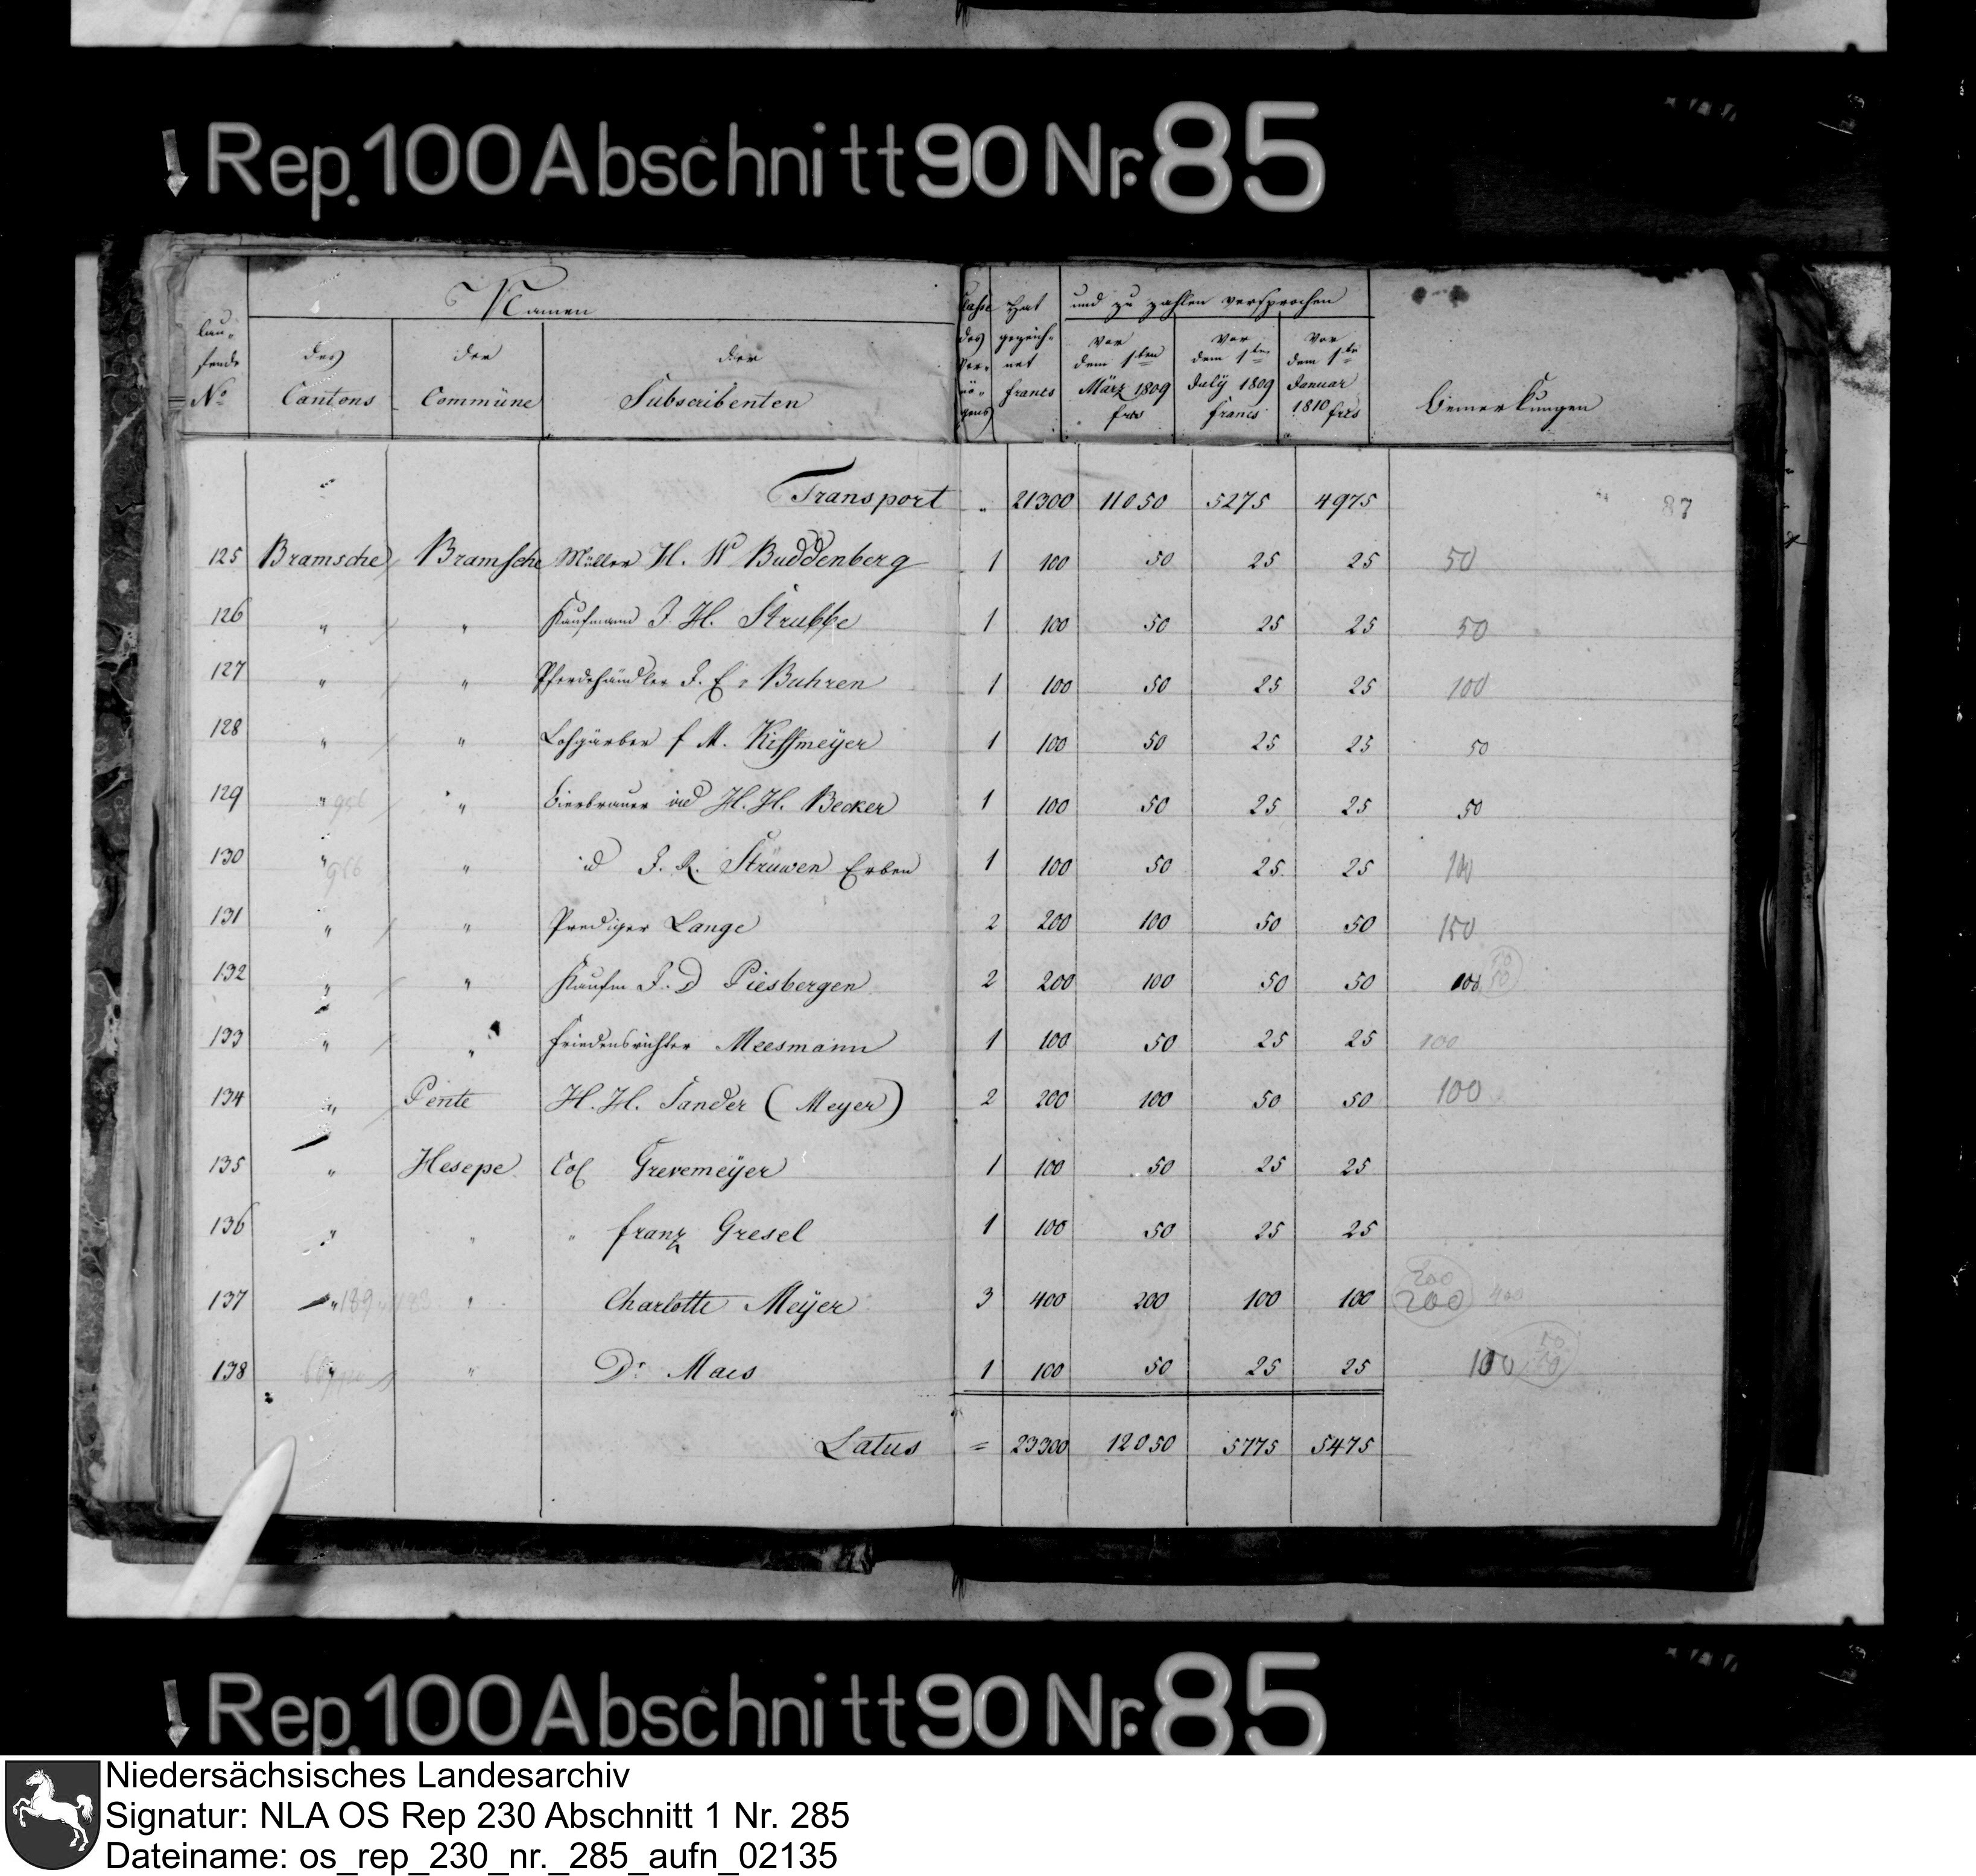 Rep. 100 Abschnitt 90 Nr. 85
Namen
lau-
fende
No
des
Cantons
der
Commüne
der
Subscribenten
Classe
des
Ver-
mö-
gens
Hat
gezeich-
net
francs
und zu zahlen versprochen
vor
dem 1sten
März 1809
frcs
vor
dem 1ten
Julÿ 1809
francs
vor
dem 1te
Januar
1810 frcs
Bemerkungen
Transport " 21300 11050 5275 4975 87
125 Bramsche Bramsche Müller H. W Buddenberg 1 100 50 25 25 50
126 " " Kaufmann J. H. Strubbe 1 100 50 25 25 50
127 " " Pferdehändler J. E. Buhren 1 100 50 25 25 100
128 " " Lohgärber f M. Kiffmeÿer 1 100 50 25 25 50
129 " 956 " Bierbrauer id H. H. Becker 1 100 50 25 25 50
130 " 956 " id J. R. Strüwen Erben 1 100 50 25 25 100
131 " " Prediger Lange 2 200 100 50 50 150
132 " " Kaufm J. D Piesbergen 2 200 100 50 50 100 50 50
133 " " Friedensrichter Meesmann 1 100 50 25 25 100
134 " Pente H. H. Sander (Meyer) 2 200 100 50 50 100
135 " Hesepe Col Grevemeÿer 1 100 50 25 25
136 " " " franz Gresel 1 100 50 25 25
137 " " Charlotte Meÿer 3 400 200 100 100 200 200 400
138 " " Dr Maes 1 100 50 25 25 100
Latus = 23300 12050 5775 5475
Rep. 100 Abschnitt 90 Nr. 85
Niedersächsisches Landesarchiv
Signatur: NLA OS Rep 230 Abschnitt 1 Nr. 285
Dateiname: os_rep_230_nr._285_aufn_02135